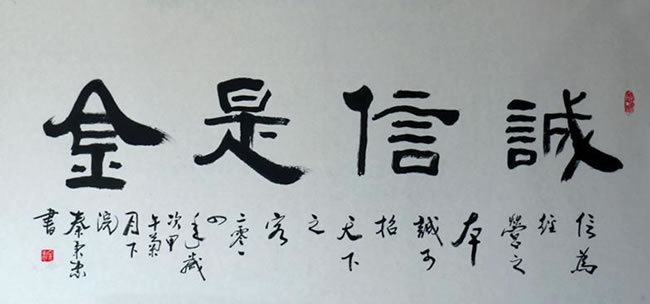 誠信是金
信為
經
營之
本
誠可
招
天下
之
客
二零一
四
年歲
次甲
午菊
月下
浣
秦忠
書